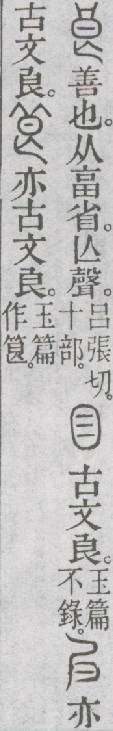 善也。从畗省。亾聲。呂張切。十部。古文良。玉篇不錄。亦
古文良。亦古文良。玉篇作